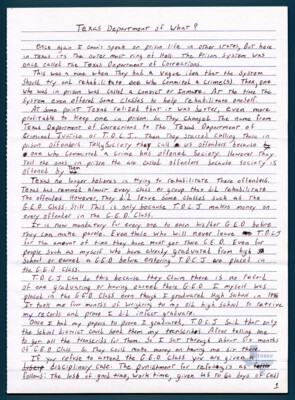 Texas Department of What?
Once again I can't speak on prison life in other states, but here
in Texas its the outer most ring of Hell. The Prison System was
once called The Texas Department of Corrections.
This was a time when they had a vague idea that the system
should try and rehabilitate one who Commited a Crime(s). Then, one
who was in prison was called a Convict or Inmate. At the time the
System even offered some classes to help rehabilitate oneself.
At some point Texas realized that it was better, even more
profitable to Keep one in prison. So They Changed the name from
Texas Department of Corrections to The Texas Department of
Criminal Justice or T.D.C.J. Then They stopped Calling Those in
prison offenders. They say they call us offenders because
one who Commited a Crime has offended Society. However They
Tell the ones in prison the are called offenders because society is
offended by us.
Texas no longer believes in trying to rehabilitate There offenders.
Texas has removed almost every class or group that did rehabilitate
The offenders. However, They did leave some classes such as the
G.E.D. Class. Still This is only because T.D.C.J. makes money on
every offender in the G.E.D. Class.
It is now mandatory for every one to earn his/her G.E.D. before
They can make parole. Even those who will never leave T.D.C.J.
for the amount of time they have must get There G.E.D. Even for
people such as myself who have already graduated from high
School or earned a G.E.D. before entering T.D.C.J. are placed in
the G.E.D. Class.
T.D.C.J. Can do this because they claim there is no record
of one graduating or having earned there G.E.D. I myself was
placed in the G.E.D. Class even though I graduated High School in
It took me five months of writing to my old high school to receive
my records and prove I did infact graduate.
Once I had my papers to prove I graduated, T.D.C.J. Said that only
the School district could send them my transcripts. After telling me
to get all the transcripts for them. So I sat through about six months
of G.E.D. Class so They could make money on having me sit there.
If you refuse to attend the G.E.D. Class you are given a
disciplinary case. The punishment for refusing is as
follows: The loss of good time, work time, given up to 60 days of Cell
1